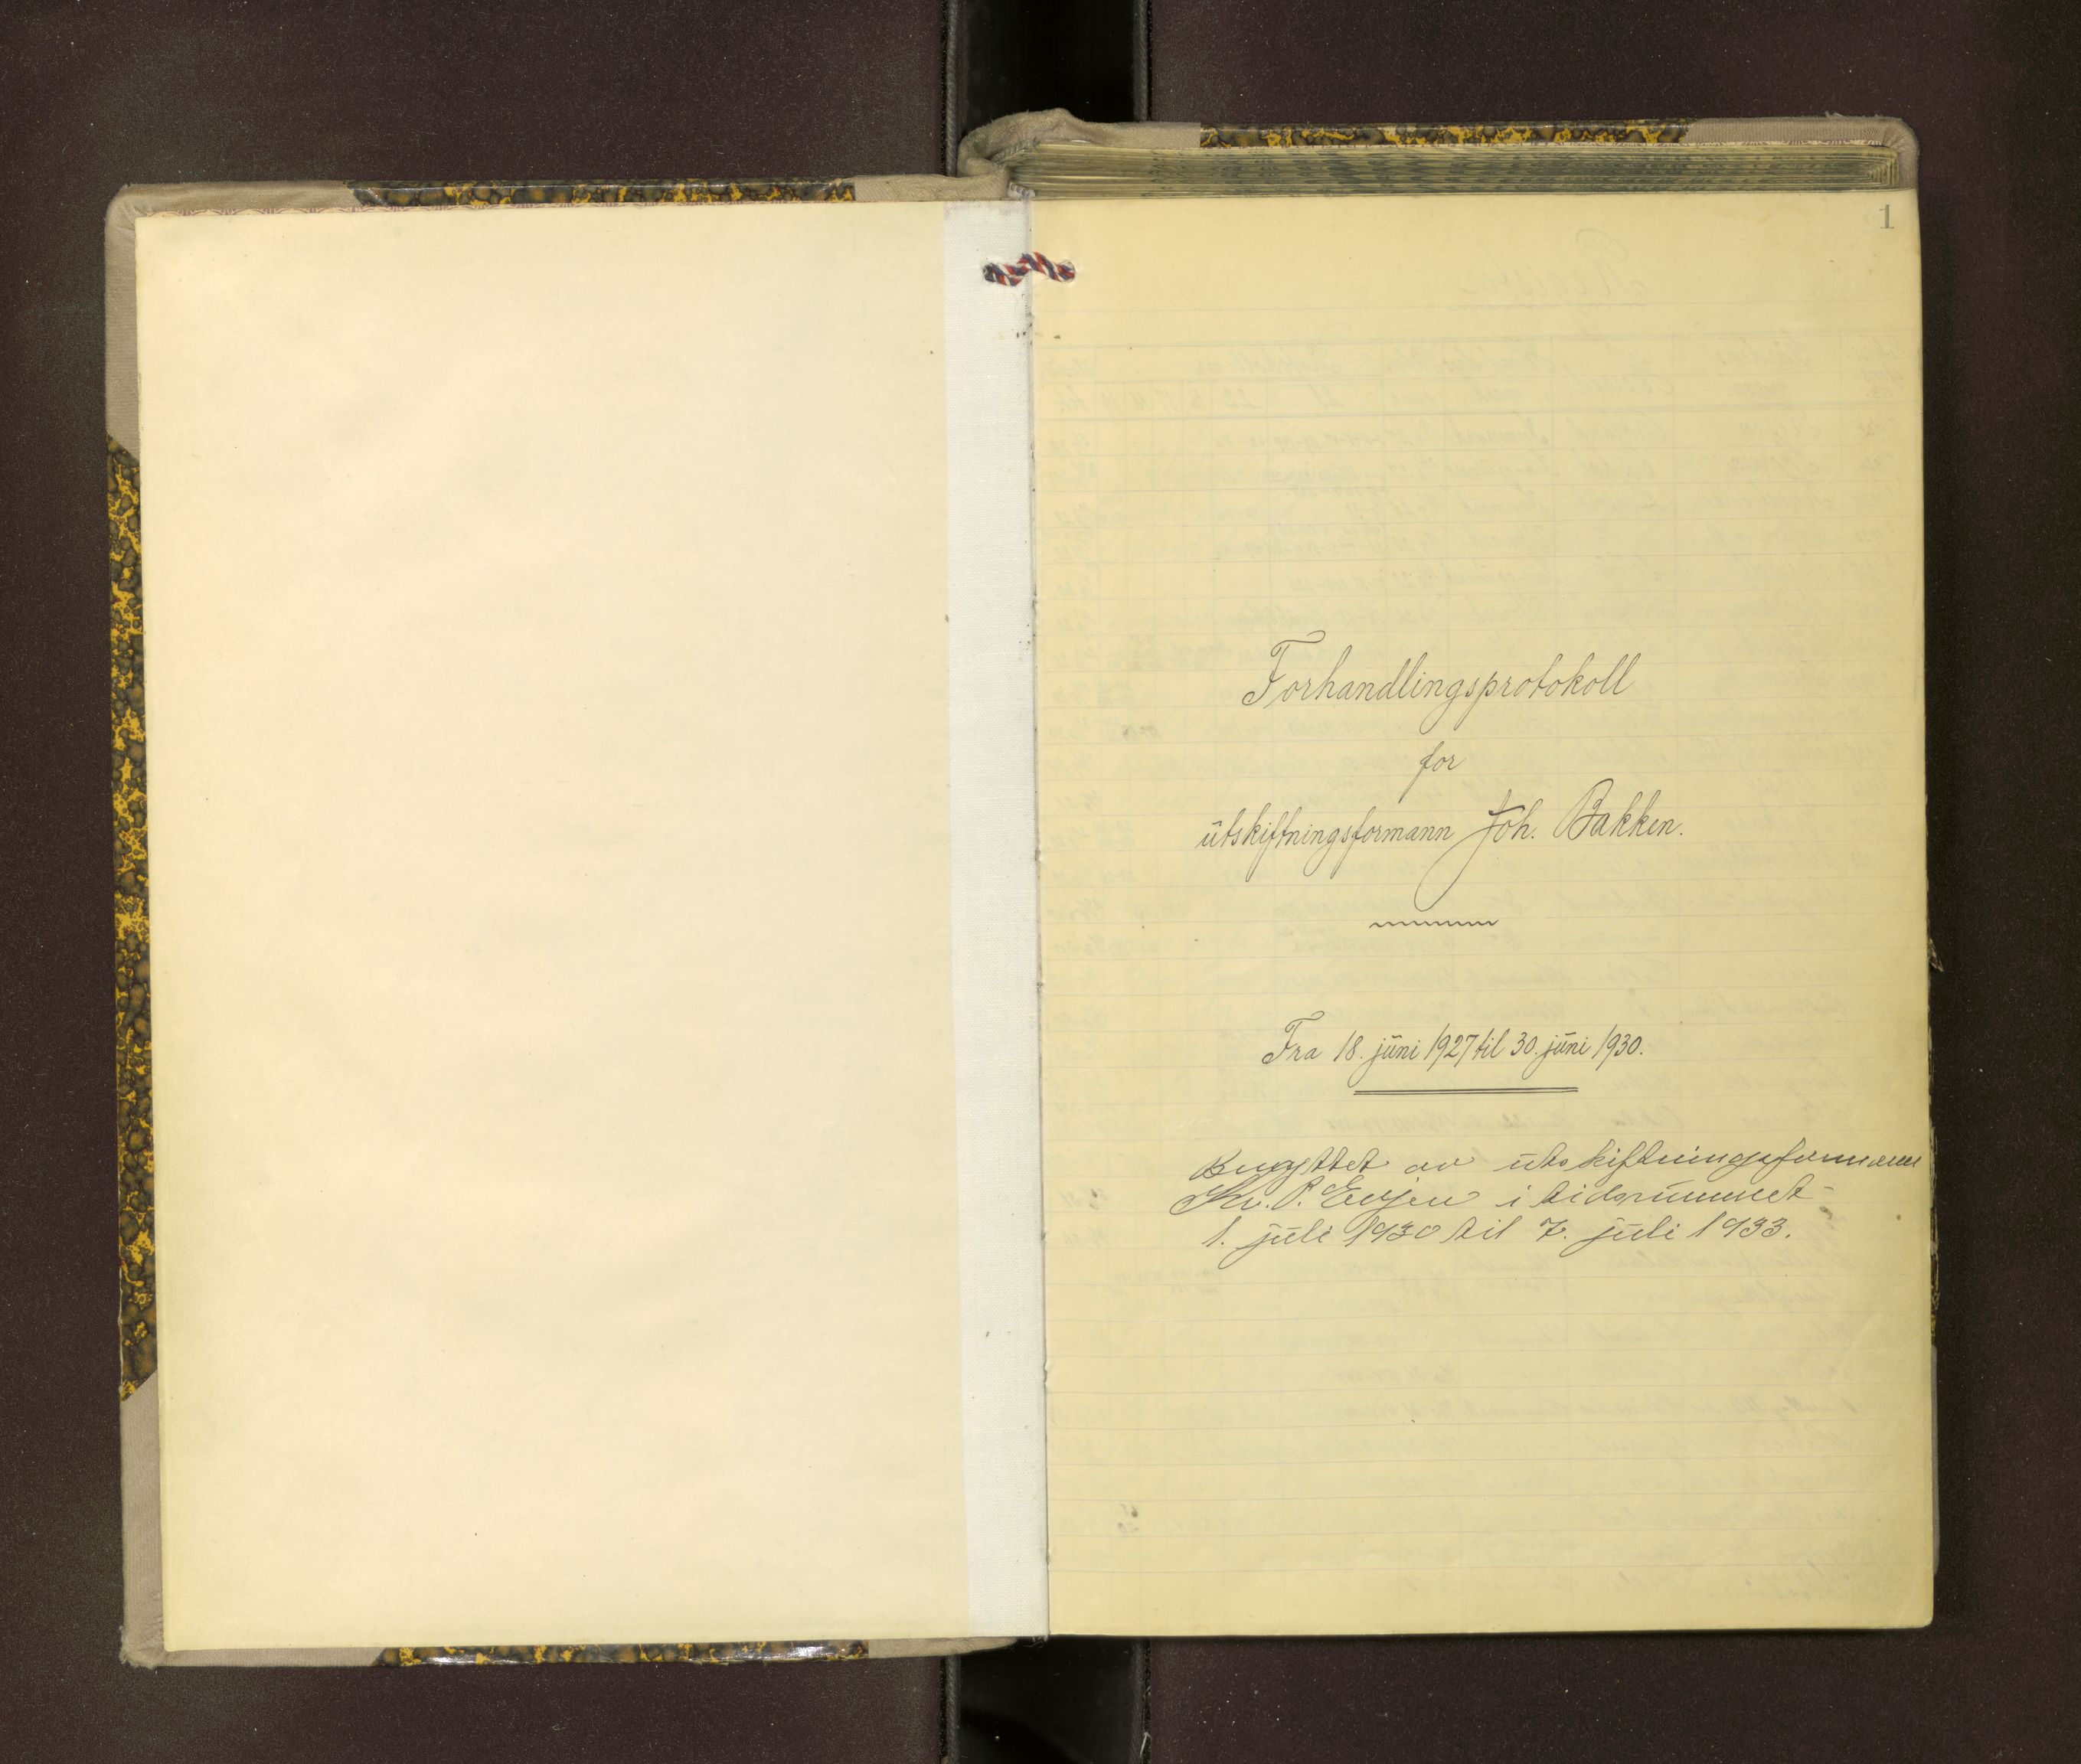 1
Forhandlingsprotokoll
for
utskiftningsformann Joh. Bakken.
Fra 18. juni 1927 til 30. juni 1930.
Benyttet av utskiftningsformann
Kr. P. i tidsrummet
1. juli 1930 til 7. juli 1933.